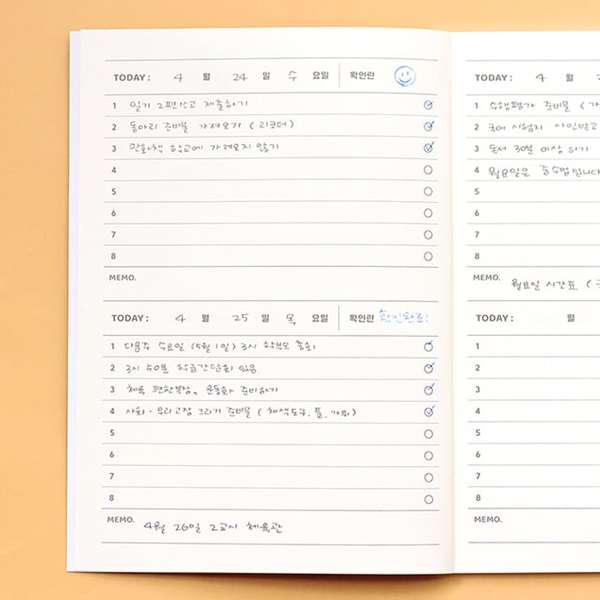 TODAY : 4 월 24 일 수 요일 확인란
1 일기 2편쓰고 제출하기
2 동아리 준비물 가져오기 (리코더)
3 만화책 학교에 가져오지 않기
4
5
6
7
8
MEMO.
TODAY : 4 월 25 일 목 요일 확인란 확인완료!
1 다음주 수요일 (5월 1일) 3시 학부모 총회
2 3시 50분 학급간담회 있음
3 체육 편한복장, 운동화 준비하기
4 사회 - 우리고장 그리기 준비물 ( 채색도구, 풀, 가위)
5
6
7
8
MEMO. 4월 26일 2교시 체육관
TODAY : 4 월
1 수행평가 준비물 (
2 국어 시험지 사인받고
3 독서 30분 이상 하기
4 월요일은 중수업입니다
5
6
7
8
MEMO. 월요일 시간표 (
TODAY : 월
1
2
3
4
5
6
7
8
MEMO.